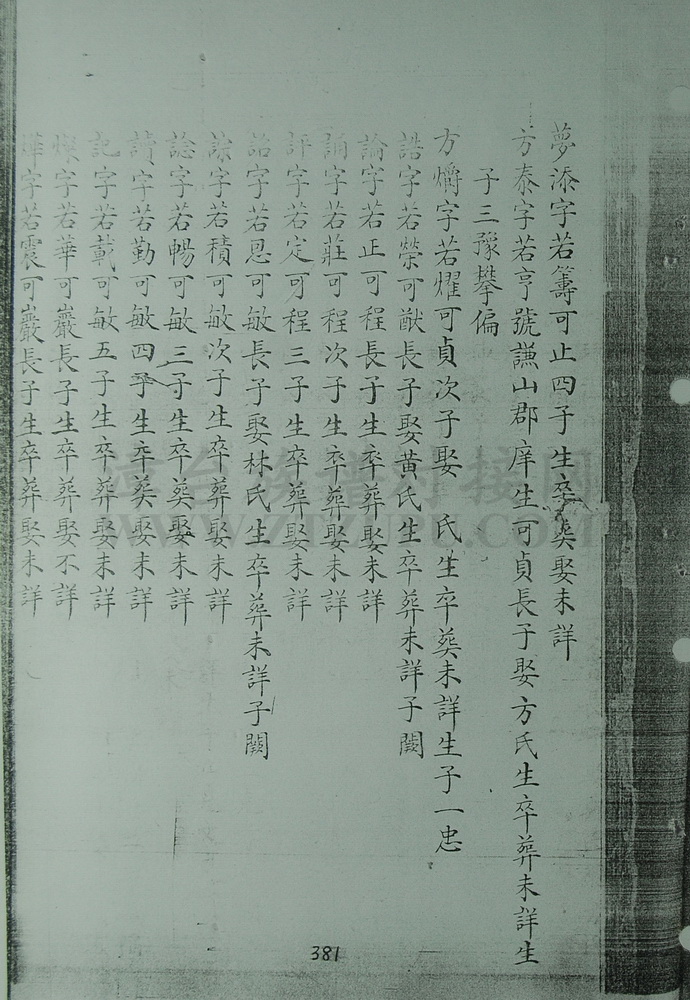 夢添字若籌可止四子生卒葬娶未詳
方泰字若亨號謙山郡庠生可貞長子娶方氏生卒葬未詳生
子三豫攀偏
方爝字若燿可貞次子娶 氏生卒葬未詳生子一忠
誥字若榮可猷長子娶黃氏生卒葬未詳子闕
論字若正可程長子生卒葬娶未詳
誦字若莊可程次子生卒葬娶未詳
評字若定可程三子生卒葬娶未詳
詒字若恩可敏長子娶林氏生卒葬未詳子闕
諒字若積可敏次子生卒葬娶未詳
諗字若暢可敏三子生卒葬娶未詳
讀字若勤可敏四子生卒葬娶未詳
記字若載可敏五子生卒葬娶未詳
燦字若華可巖長子生卒葬娶不詳
字若震可巖長子生卒葬娶未詳
381
WWW.ZTZUPU.COM